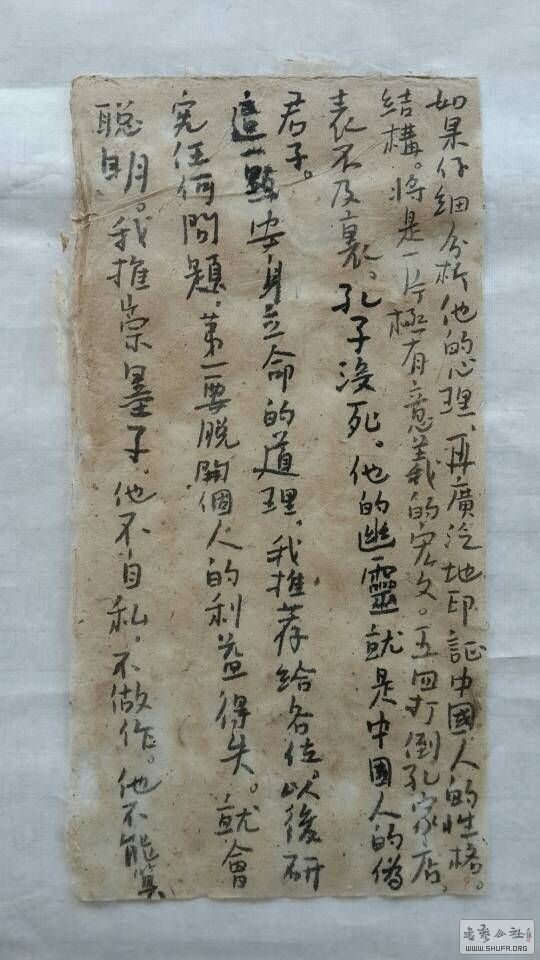 如果仔细分析他的心理、再廣泛地印証中國人的性格。
结構。将是一片極有意義的宏文。五四打倒孔家店。
表不及裏。孔子没死。他的幽靈就是中國人的偽
君子。
這一點安身立命的道理。我推荐给各位。以後研
究任何問題。第一要脱開個人的利益得失。就會
聪明。我推崇墨子。他不自私。不做作。他不能算
书艺公社
WWW.SHUFA.ORG